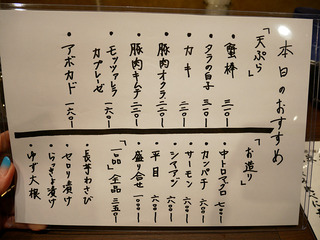 本日のおすすめ
「天ぷら」
・蟹棒 三一〇-
・タラの白子 三一〇-
・カキ 二一〇-
・豚肉オクラ 二二〇-
・豚肉キムチ 二二〇-
・モッツァレラカプレーゼ 一六〇-
・アボカド 一六〇-
「お造り」
・中トロマグロ 七〇〇-
・カンパチ 六〇〇-
・サーモン 六〇〇-
・シマアジ 六〇〇-
・平目 六〇〇-
・盛り合せ 一〇〇〇-
「一品」全品 三五〇-
・長芋わさび
・セロリ漬け
・らっきょ漬け
・ゆず大根